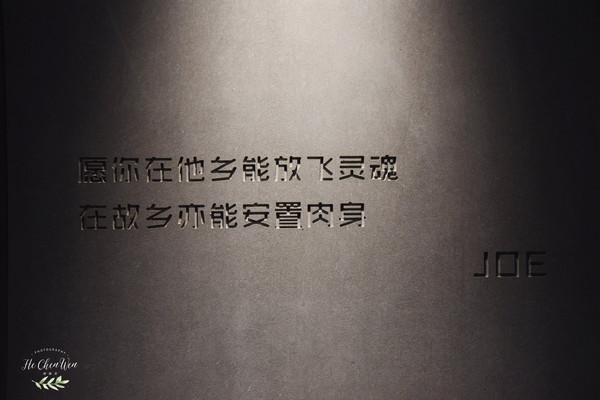 愿你在他乡能放飞灵魂
在故乡亦能安置肉身
JOE
PHOTOGRAPHY
He Chen Wen